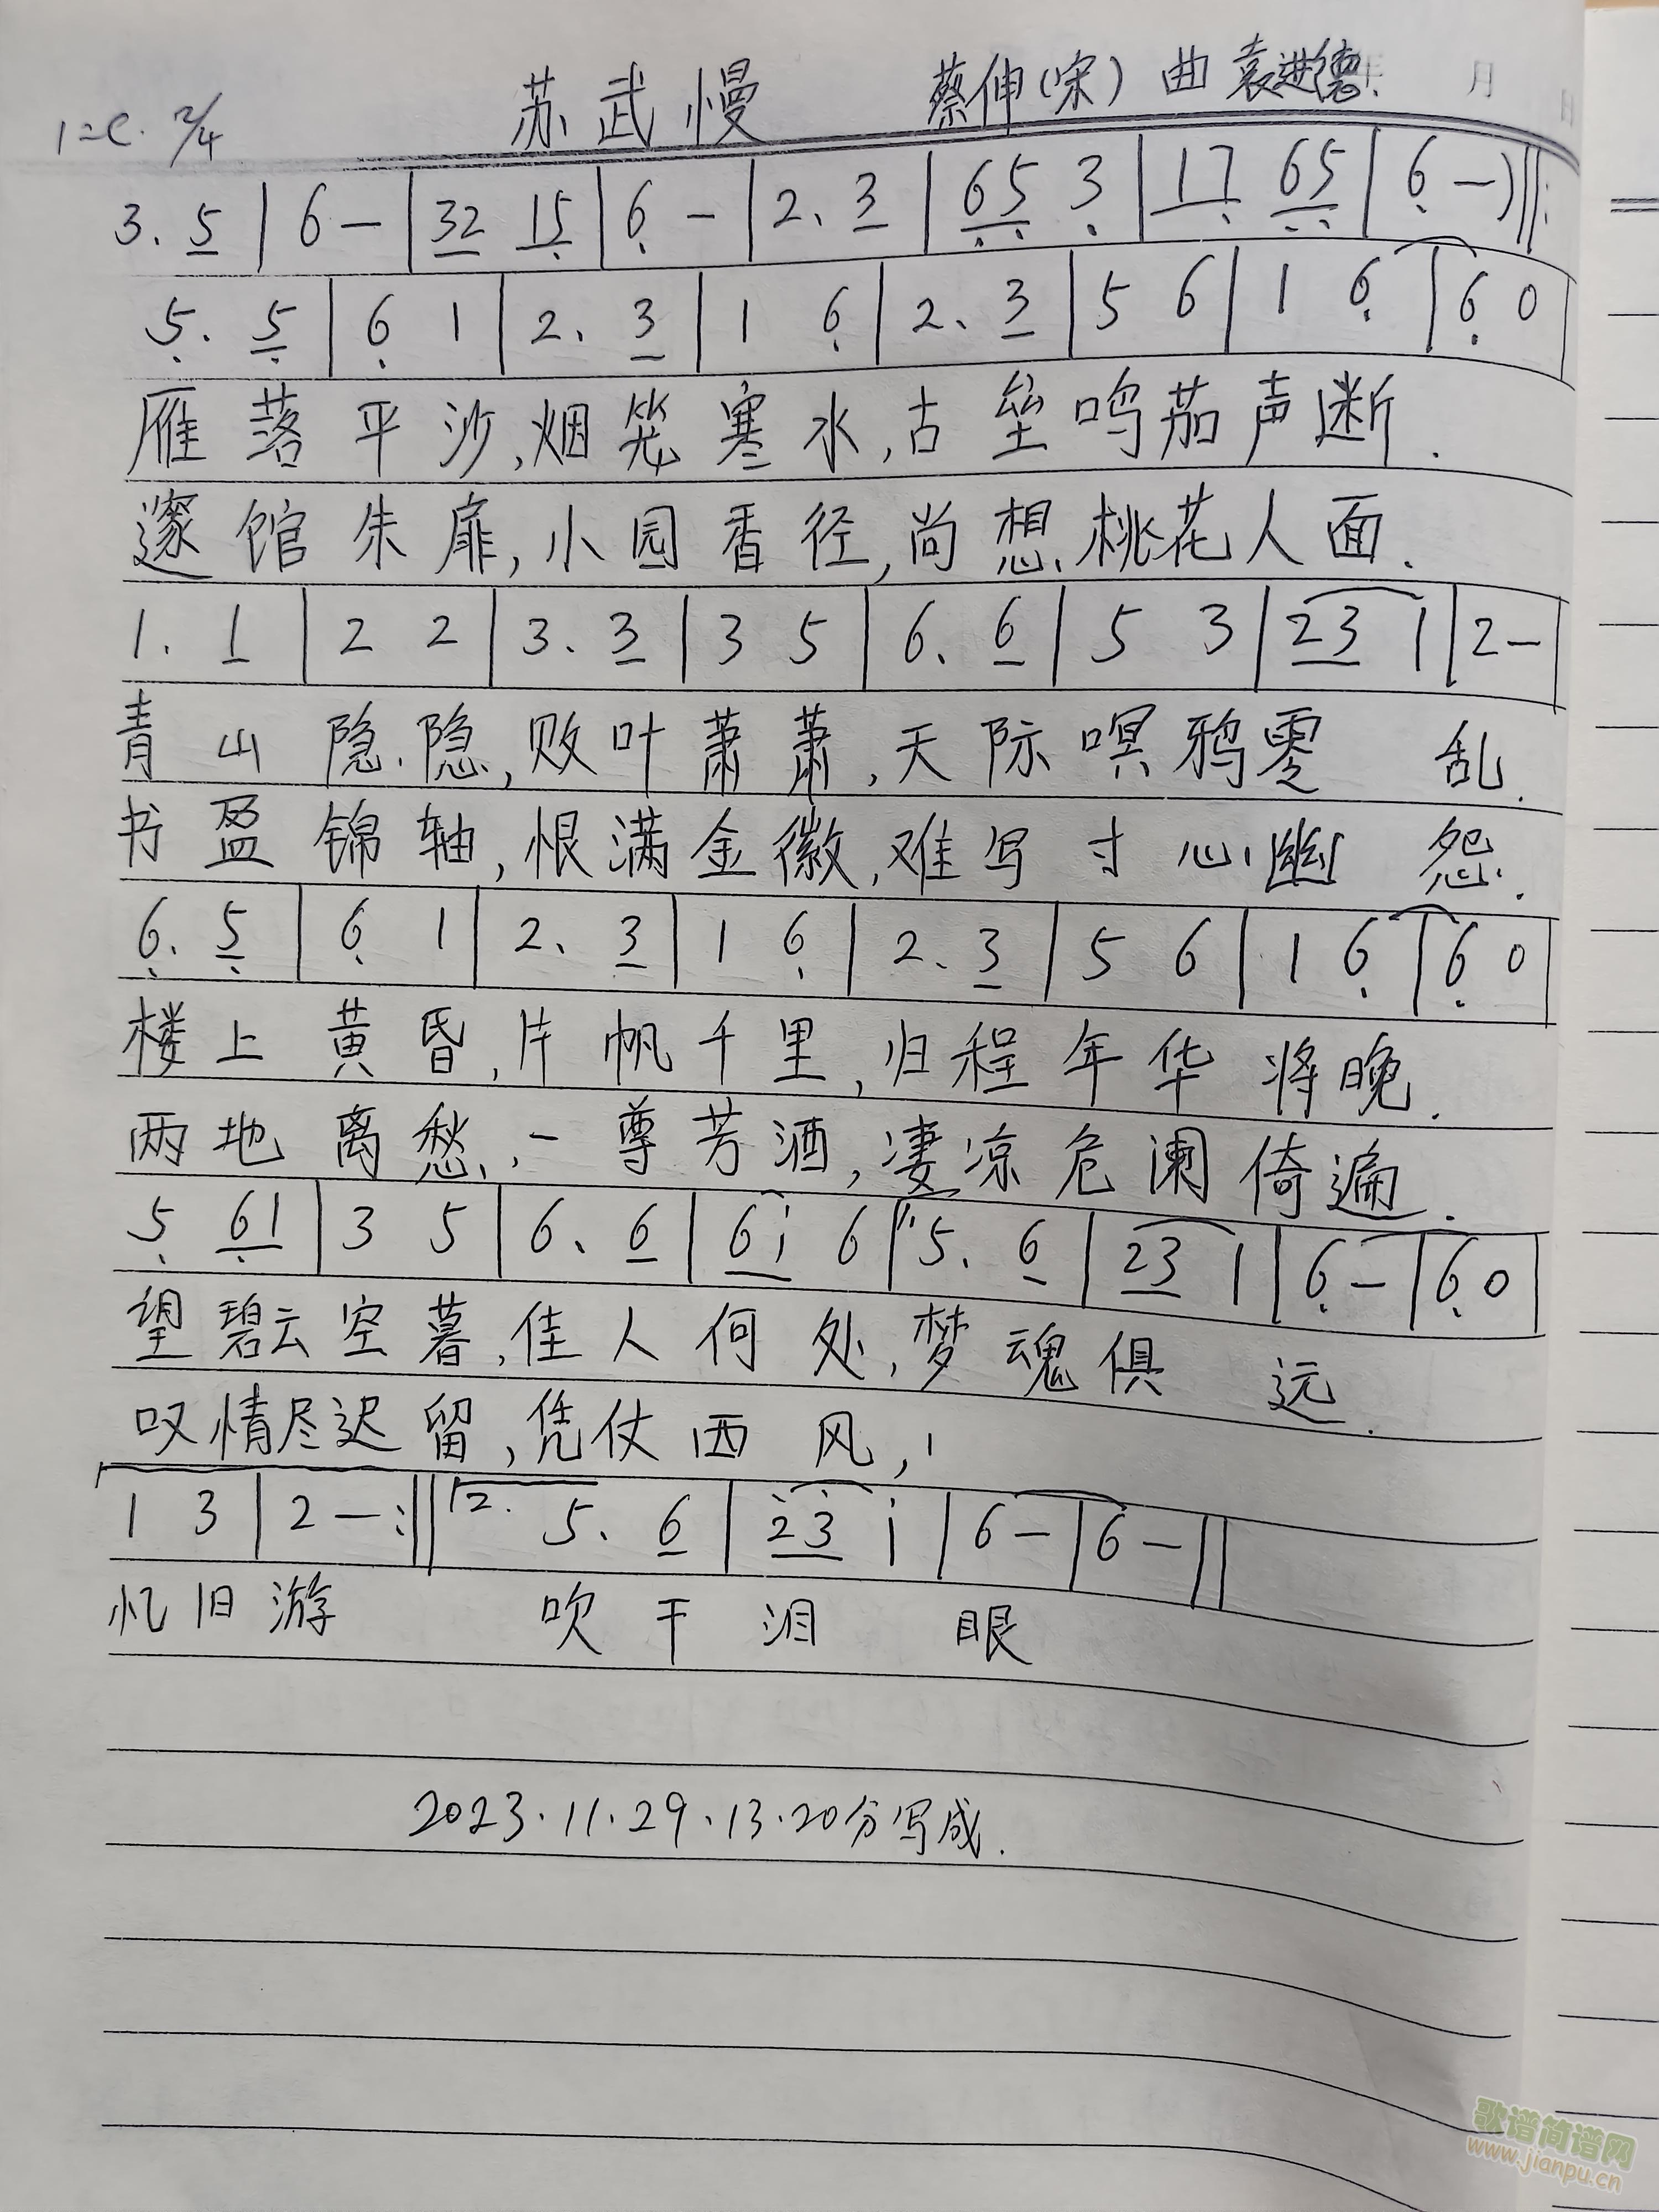 苏武慢 蔡伸(宋) 曲 袁进德 年 月 日
1=C. 2/4
3. 5 | 6 - | 32 15 | 6 - | 2. 3 | 65 3 | 17 65 | 6 - ) ‖:
5. 5 | 6 1 | 2. 3 | 1 6 | 2. 3 | 5 6 | 1 6 | 6 0
雁落平沙,烟笼寒水,古垒鸣茄声断.
邃馆朱扉,小园香径,尚想桃花人面.
1. 1 | 2 2 | 3. 3 | 3 5 | 6. 6 | 5 3 | 23 1 | 2 -
青山隐隐,败叶萧萧,天际嗅鸦零乱.
书盈锦轴,恨满金徽,难写寸心幽怨.
6. 5 | 6 1 | 2. 3 | 1 6 | 2. 3 | 5 6 | 1 6 | 6 0
楼上黄昏,片帆千里,归程年华将晚.
两地离愁,一尊芳酒,凄凉危阑倚遍.
5 61 | 3 5 | 6. 6 | 6i 6 | 1. 5. 6 | 23 1 | 6 - | 6 0
望碧云空暮,佳人何处,梦魂俱远.
叹情尽迟留,凭仗西风,
1 3 | 2 - :‖ 2. 5. 6 | 23 i | 6 - | 6 - ‖
忆旧游 吹干泪眼
2023.11.29.13.20分写成.
歌谱简谱网
www.jianpu.cn